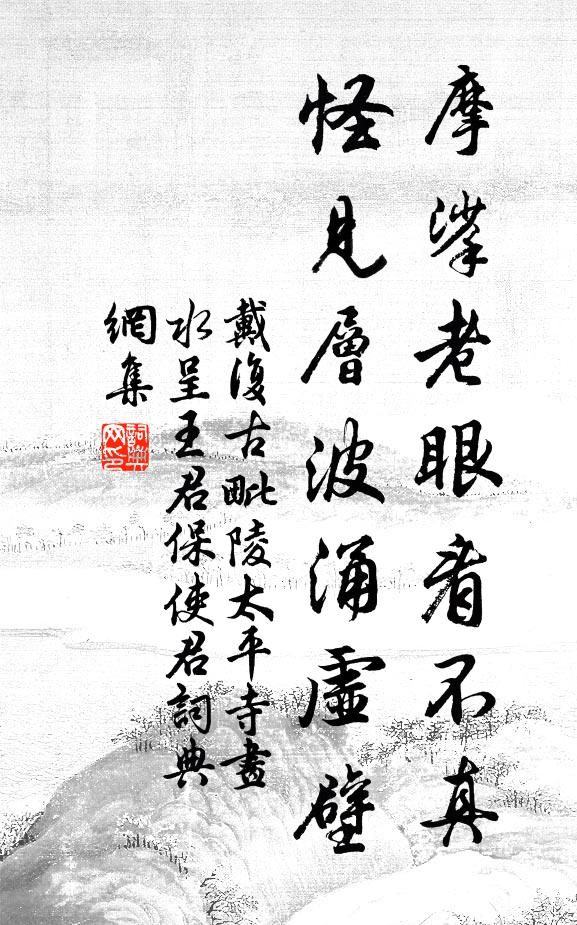 摩挲老眼看不真
怪見層波涌虛壁
戴復古毗陵太平寺畫
水呈王君保使君詞典
網集